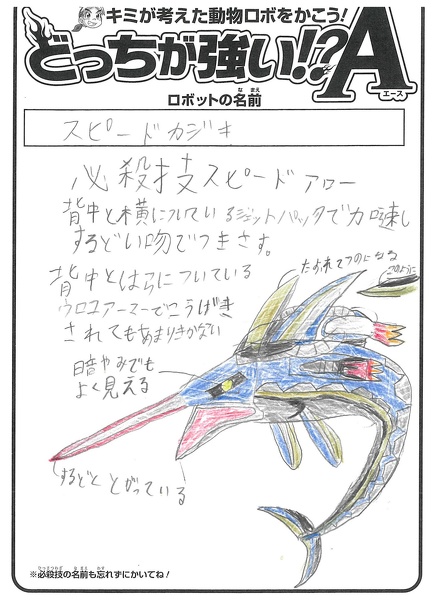 キミが考えた動物ロボをかこう!
どっちが強い!?A
エース
ロボットの名前
なまえ
スピードカジキ
必殺技スピードアロー
背中と横についているジェットパックで加速し
するどい吻でつきさす。
背中とはらについている
ウロコアーマーでこうげき
されてもあまりきかない
たおれてつのになる
このように
暗やみでも
よく見える
するどくとがっている
※必殺技の名前も忘れずにかいてね!
ひっさつわざ なまえ わす